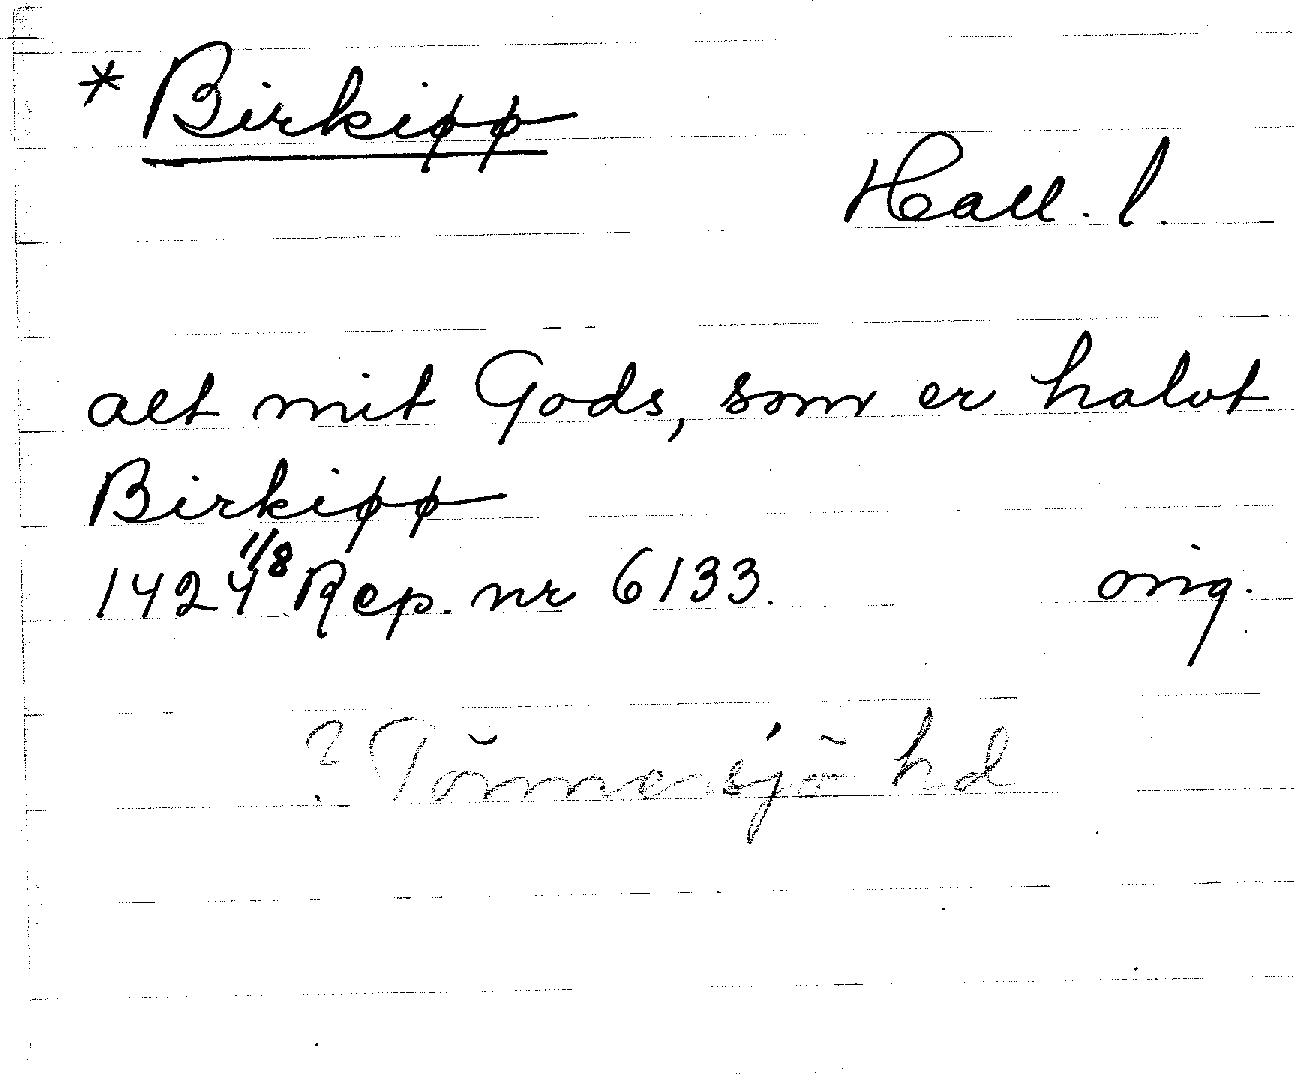 * Birkipp
Hall. l.
alt mit Gods, som er halvt
Birkipp
1424 11/8 Rep. nr 6133. orig.
? Tönnersjö hd